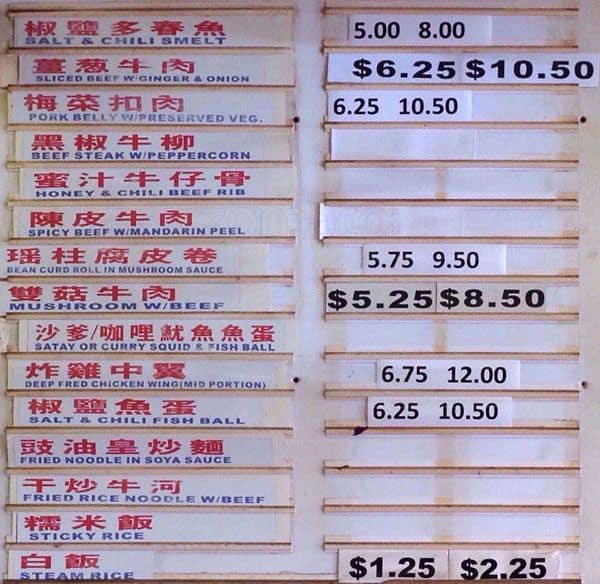 椒鹽多春魚 5.00 8.00
SALT & CHILI SMELT
薑葱牛肉 $6.25 $10.50
SLICED BEEF W/GINGER & ONION
梅菜扣肉 6.25 10.50
PORK BELLY W/PRESERVED VEG.
黑椒牛柳
BEEF STEAK W/PEPPERCORN
蜜汁牛仔骨
HONEY & CHILI BEEF RIB
陳皮牛肉
SPICY BEEF W/MANDARIN PEEL
瑤柱腐皮卷 5.75 9.50
BEAN CURD ROLL IN MUSHROOM SAUCE
雙菇牛肉 $5.25 $8.50
MUSHROOM W/BEEF
沙爹/咖哩魷魚魚蛋
SATAY OR CURRY SQUID & FISH BALL
炸雞中翼 6.75 12.00
DEEP FRED CHICKEN WING(MID PORTION)
椒鹽魚蛋 6.25 10.50
SALT & CHILI FISH BALL
豉油皇炒麵
FRIED NOODLE IN SOYA SAUCE
干炒牛河
FRIED RICE NOODLE W/BEEF
糯米飯
STICKY RICE
白飯 $1.25 $2.25
STEAM RICE